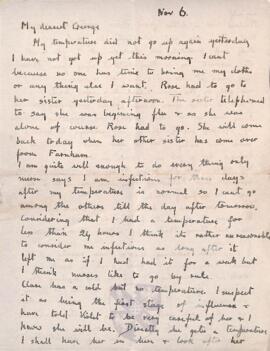 Nov 6.
My dearest George
My temperature did not go up again yesterday
I have not got up yet this morning. I cant
because no one has time to bring me my cloths
or any thing else I want. Rose had to go to
her sister yesterday afternoon. The sister telephoned
to say she was beginning flu & as she was
alone of course Rose had to go. She will come
back today when her other sister has come over
from Farnham.
I am quite well enough to do every thing only
nurse says I am infectious for three days
after my temperature is normal so I cant go
among the others till the day after tomorrow.
Considering that I had a temperature for
less than 24 hours I think its rather unreasonable
to consider me infectious as long after it
left me as if I had had it for a week but
I think nurses like to go by rule.
Clare has a cold but no temperature. I suspect
it as being the first stage of influenza &
have told Violet to be very careful of her &
I know she will be. Directly she gets a temperature
I shall have her in here & look after her